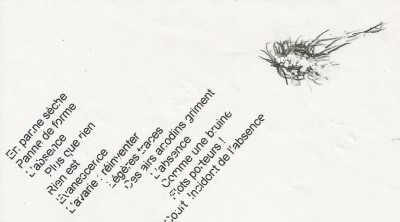 En panne sèche
Panne de forme
L'absence
Plus que rien
Rien est
Evanescence
L'azarie réinventer
Légères traces
Des airs anodins griment
L'absence
Comme une bruine
Flots porteurs !
Court incident de l'absence